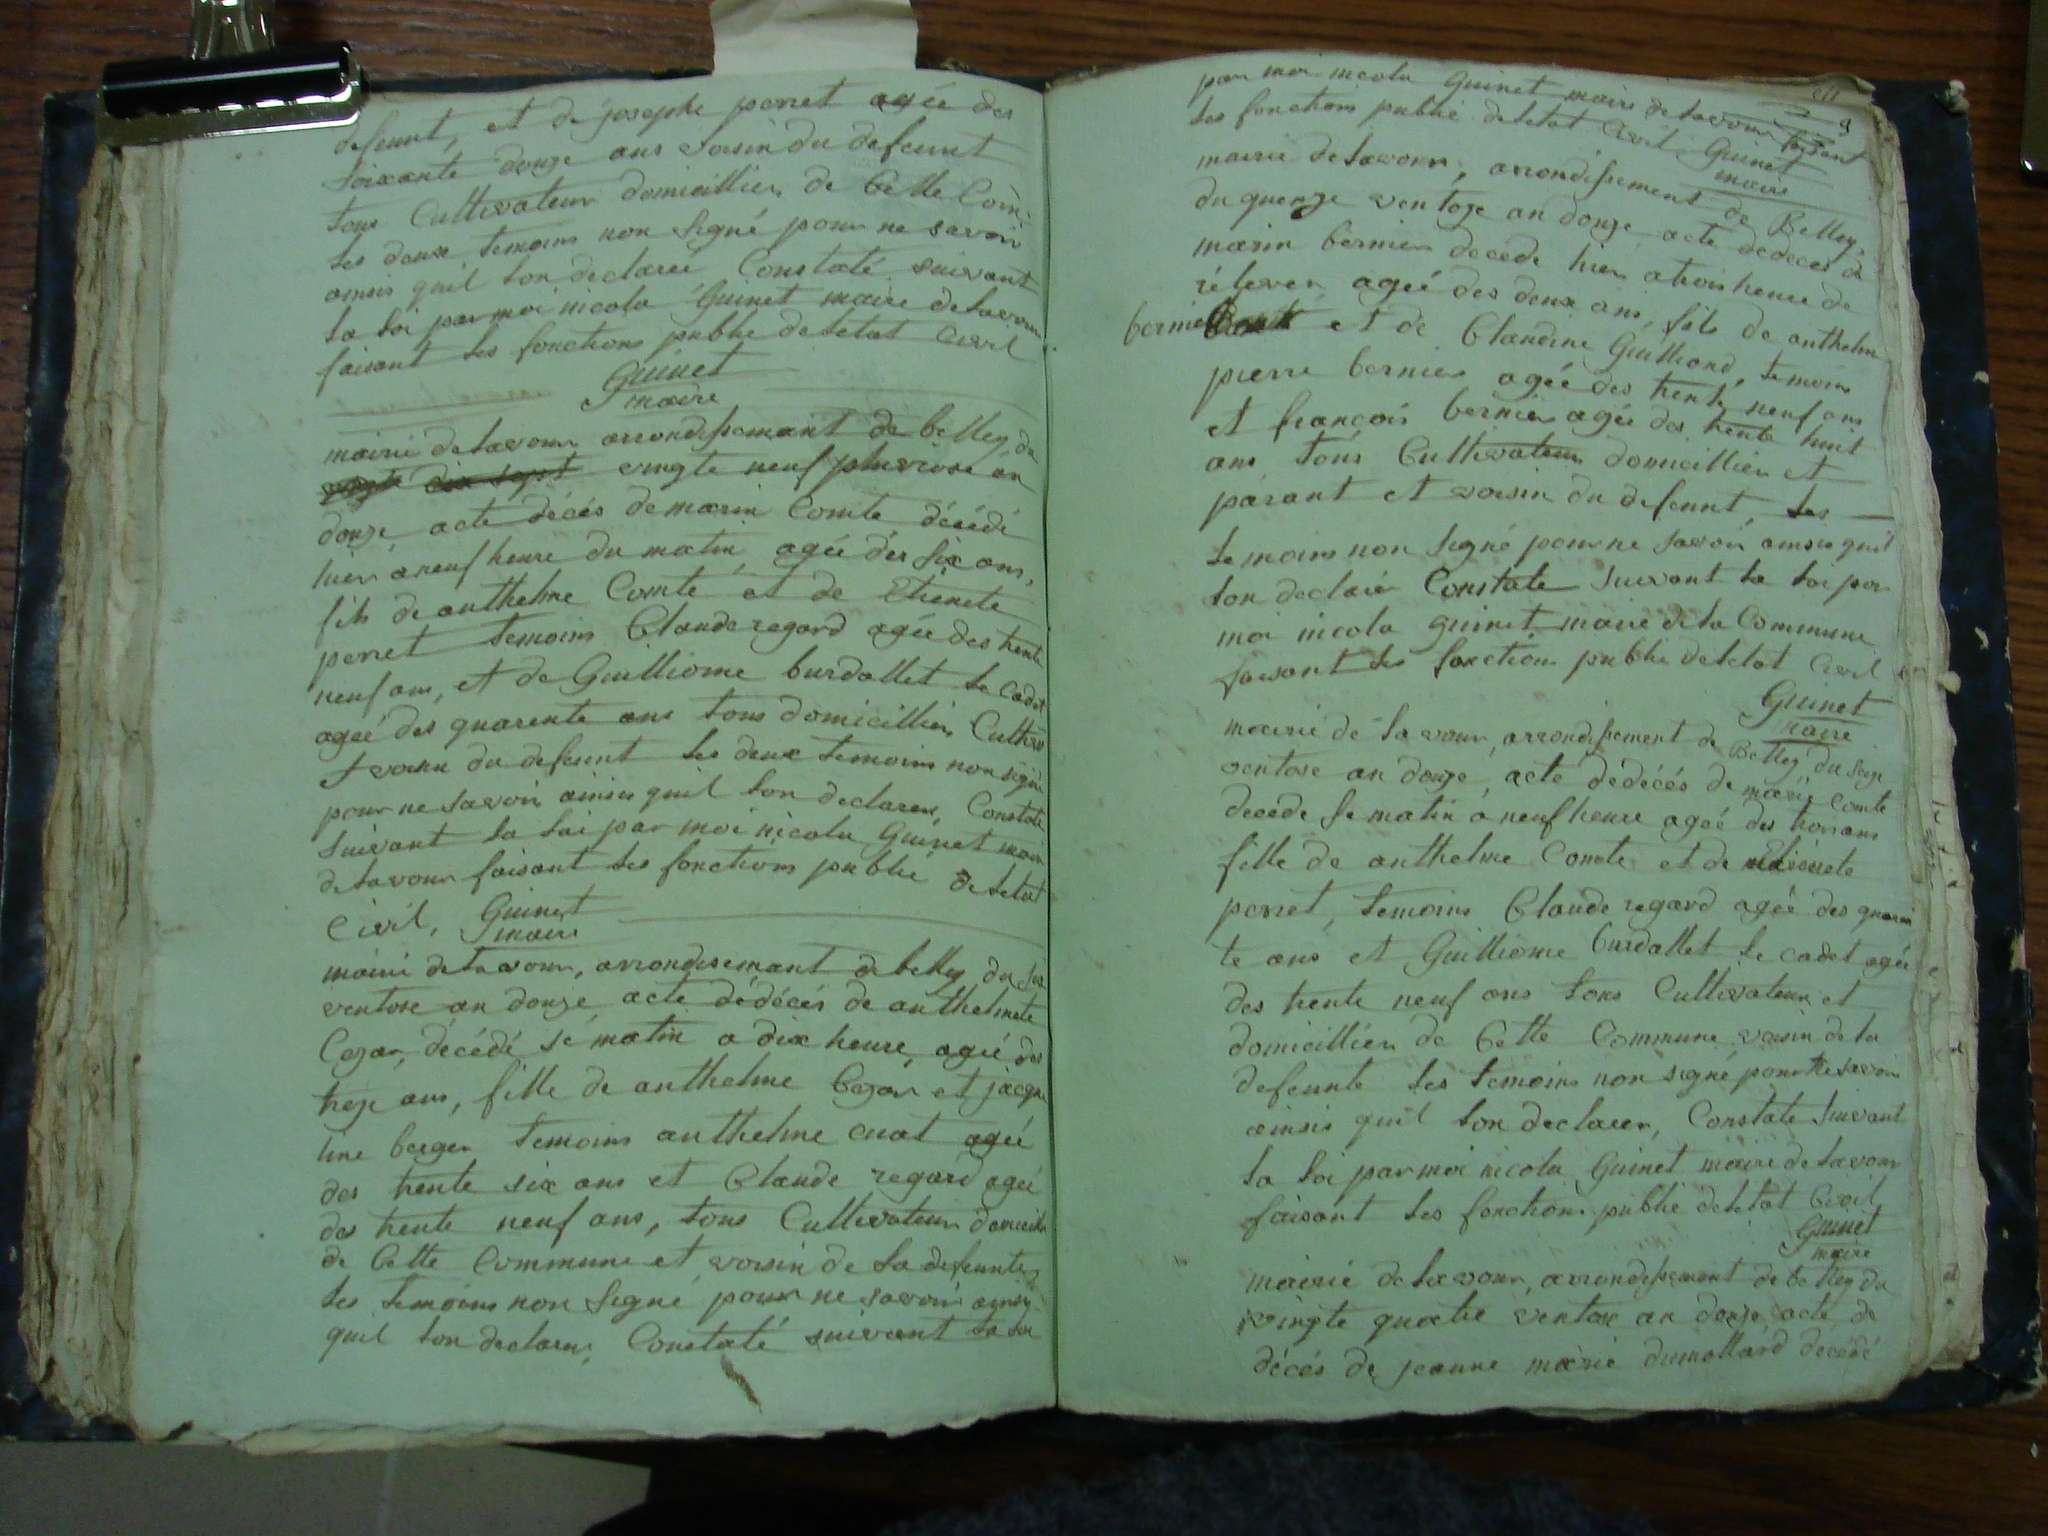 defeunt, et de josephe perret agée des
soixante douze ans voisin du defeunt
tous Cultivateur domicillier de Cette Com:
les deux temoins non signé pour ne savoir
ainsis quil lon declareé Constaté suivant
la loi par moi nicola Guinet maire de lavour
faisant les fonctions publie de letat Civil
Guinet
maire
mairie de lavour arrondisemant de belley du
vingte neuf pluviose an
douze acte décés de marin Comte décédé
hier a neuf heure du matin agée des six ans,
fils de anthelme Comte et de Etienete
perret temoins Claude regard agée des trente
neuf ans, et de Guilliome burdallet le cadet
agée des quarente ans tous domicillier Cultiv
et voisin du defeunt les deux temoins non signé
pour ne savoir ainsis quil lon declarer, Constate
suivant la loi par moi nicola Guinet maire
de lavour faisant les fonctions publie de letat
Civil, Guinet
maire
mairie de lavour, arrondisemant de belley du six
ventose an douze acte dédécés de anthelmete
Cezar, décédé sé matin a dix heure, agée des
treze ans, fille de anthelme Cezar et jacque
line berger temoins anthelme cuat agée
des trente six ans et Claude regard agée
des trente neuf ans, tous Cultivateur domicilie
de Cette Commune et voisin de la defeunte
les temoins non signé pour ne savoir ainsy
quil lon declarer, Constaté suivant la loi
par moi nicola Guinet maire de lavour faisant
les fonctions publie de letat Civil Guinet
maire
9
mairie de lavour, arrondisement de Belley,
du quenze ventoze an douze acte dedeces de
marin bernier decede hier a trois heure de
rélever agée des deux ans, fils de anthelme
bernier et de Clandine Guilliand, temoins
pierre bernier agée des trente neuf ans
et françois bernier agée des trente huit
ans tous Cultivateur domicillier et
parant et voisin du defeunt, les
temoins non signé pour ne savoir ainsis quil
lon declaré Constate suivant la loi par
moi nicola guinet maire de la Commune
faisant les fonctions publie de letat Civil
Guinet
maire
mairie de lavour, arrondisement de Belley du seze
ventose an douze, acte dédécés de marie Comte
decede se matin a neuf heure agée des trois ans
fille de anthelme Comte et de etienete
perret, temoins Claude regard agée des quaren
te ans et Guilliome burdallet le cadet agée
des trente neuf ans tous Cultivateur et
domicillier de Cette Commune voisin de la
defeunte les temoins non signé pour ne savoir
ainsis quil lon declarer, Constate suivant
la loi par moi nicola Guinet maire de lavour
faisant les fonctions publie de letat Civil
Guinet
maire
mairie de lavour, arrondisement de belley du
vingte quatre ventose an douze acte de
décés de jeanne marie dumollard décédé